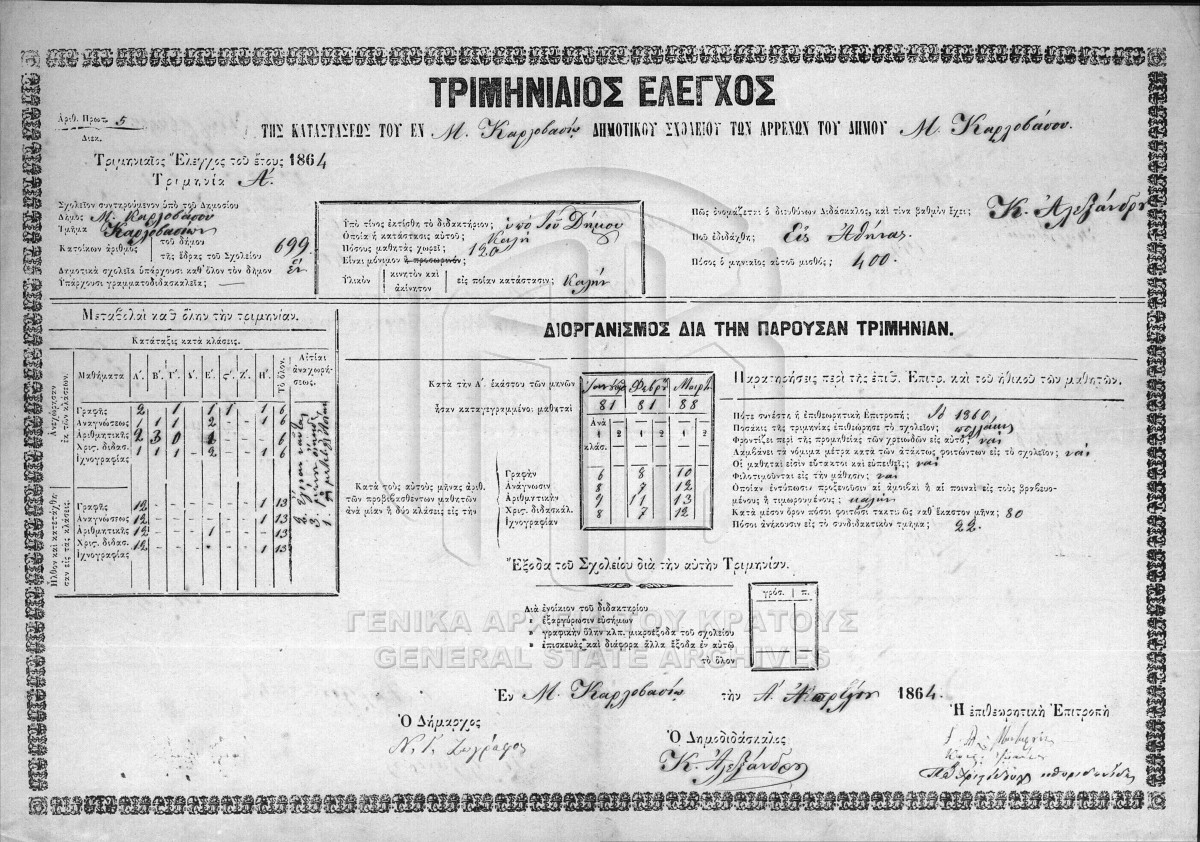 ΤΡΙΜΗΝΙΑΙΟΣ ΕΛΕΓΧΟΣ
Ἀριθ. Πρωτ. 5
Διεκ.
ΤΗΣ ΚΑΤΑΣΤΑΣΕΩΣ ΤΟΥ ΕΝ Μ. Καρλοβασίῳ ΔΗΜΟΤΙΚΟΥ ΣΧΟΛΕΙΟΥ ΤΩΝ ΑΡΡΕΝΩΝ ΤΟΥ ΔΗΜΟΥ Μ. Καρλοβάσου.
Τριμηνιαῖος Ἔλεγχος τοῦ ἔτους 1864
Τριμηνία Α΄.
Σχολεῖον συντηρούμενον ὑπὸ τοῦ Δημοσίου
Δῆμος Μ. Καρλοβάσου
Τμῆμα Καρλοβασίων
Κατοίκων ἀριθμὸς τοῦ δήμου
τῆς ἕδρας τοῦ Σχολείου 699.
Δημοτικὰ σχολεῖα ὑπάρχουσι καθ' ὅλον τὸν δῆμον ἕν
Ὑπάρχουσι γραμματοδιδασκαλεῖα; —
Ὑπὸ τίνος ἐκτίσθη τὸ διδακτήριον; ὑπὸ τοῦ Δήμου
Ὁποία ἡ κατάστασις αὐτοῦ; Καλή
Πόσους μαθητὰς χωρεῖ; 120
Εἶναι μόνιμον ἢ προσωρινόν;
Ὑλικὸν κινητὸν καὶ ἀκίνητον εἰς ποίαν κατάστασιν; Καλήν
Πῶς ὀνομάζεται ὁ διευθύνων Διδάσκαλος, καὶ τίνα βαθμὸν ἔχει; Κ. Ἀλεξάνδρου
Ποῦ ἐδιδάχθη; Εἰς Ἀθήνας.
Πόσος ὁ μηνιαῖος αὐτοῦ μισθός; 400.
Μεταβολαὶ καθ' ὅλην τὴν τριμηνίαν.
Κατάταξις κατὰ κλάσεις.
Μαθήματα Α΄. Β΄. Γ΄. Δ΄. Ε΄. ς΄. Ζ΄. Η΄. Τὸ ὅλον. Αἰτίαι ἀναχωρήσεως.
Ἀνεχώρησαν ἐκ τῶν κλάσεων.
Γραφῆς 2 - 1 1 1 - 1 6
Ἀναγνώσεως - 1 1 - 2 - - 1 6
Ἀριθμητικῆς 2 3 0 1 - - - 6
Χρις. διδασ. 1 1 1 - 2 - - 1 6
Ἰχνογραφίας
Ἦλθον καὶ κατετάχθησαν εἰς τὰς κλάσεις.
Γραφῆς 12 - - - - - - 1 13
Ἀναγνώσεως 12 - - - - - - 1 13
Ἀριθμητικῆς 12 - - - 1 - - 13
Χρις. διδασ. 12 - - - - - - 1 13
Ἰχνογραφίας
ΔΙΟΡΓΑΝΙΣΜΟΣ ΔΙΑ ΤΗΝ ΠΑΡΟΥΣΑΝ ΤΡΙΜΗΝΙΑΝ.
Κατὰ τὴν Α΄. ἑκάστου τῶν μηνῶν Ἰανουαρ. Φεβρ. Μαρτ.
ἦσαν καταγεγραμμένοι μαθηταὶ 81 81 88
Ἀνὰ
1 2 1 2 1 2
κλάσ.
Κατὰ τοὺς αὐτοὺς μῆνας ἀριθ.
τῶν προβιβασθέντων μαθητῶν
ἀνὰ μίαν ἢ δύω κλάσεις εἰς τὴν
Γραφὴν 6 8 10
Ἀνάγνωσιν 8 7 12
Ἀριθμητικὴν 9 11 13
Χρις. διδασκάλ. 8 7 12
Ἰχνογραφίαν
Παρατηρήσεις περὶ τῆς ἐπιθ. Ἐπιτρ. καὶ τοῦ ἠθικοῦ τῶν μαθητῶν.
Πότε συνέστη ἡ ἐπιθεωρητικὴ Ἐπιτροπή; Τῷ 1860
Ποσάκις τῆς τριμηνίας ἐπιθεώρησε τὸ σχολεῖον; πολλάκις
Φροντίζει περὶ τῆς προμηθείας τῶν χρειωδῶν εἰς αὐτό; ναί
Λαμβάνει τὰ νόμιμα μέτρα κατὰ τῶν ἀτάκτως φοιτώντων εἰς τὸ σχολεῖον; ναί
Οἱ μαθηταὶ εἰσὶν εὔτακτοι καὶ εὐπειθεῖς; ναί
Φιλοτιμοῦνται εἰς τὴν μάθησιν; ναί
Ὁποίαν ἐντύπωσιν προξενοῦσιν αἱ ἀμοιβαὶ ἢ αἱ ποιναὶ εἰς τοὺς βραβευομένους ἢ τιμωρουμένους; καλήν
Κατὰ μέσον ὅρον πόσοι φοιτῶσι τακτικῶς καθ' ἕκαστον μῆνα; 80
Πόσοι ἀνήκουσιν εἰς τὸ συνδιδακτικὸν τμῆμα; 22.
Ἔξοδα τοῦ Σχολείου διὰ τὴν αὐτὴν Τριμηνίαν.
γρόσ. π.
Διὰ ἐνοίκιον τοῦ διδακτηρίου
» ἐξαργύρωσιν εὐσήμων
» γραφικὴν ὕλην κλπ. μικροέξοδα τοῦ σχολείου
» ἐπισκευὰς καὶ διάφορα ἄλλα ἔξοδα ἐν αὐτῷ
τὸ ὅλον
ΓΕΝΙΚΑ ΑΡΧΕΙΑ ΤΟΥ ΚΡΑΤΟΥΣ
GENERAL STATE ARCHIVES
Ἐν Μ. Καρλοβασίῳ τὴν Α΄ Ἀπριλίου 1864.
Ὁ Δήμαρχος
Ν. Γ. Ζωγράφος
Ὁ Δημοδιδάσκαλος
Κ. Ἀλεξάνδρου
Ἡ ἐπιθεωρητικὴ Ἐπιτροπή